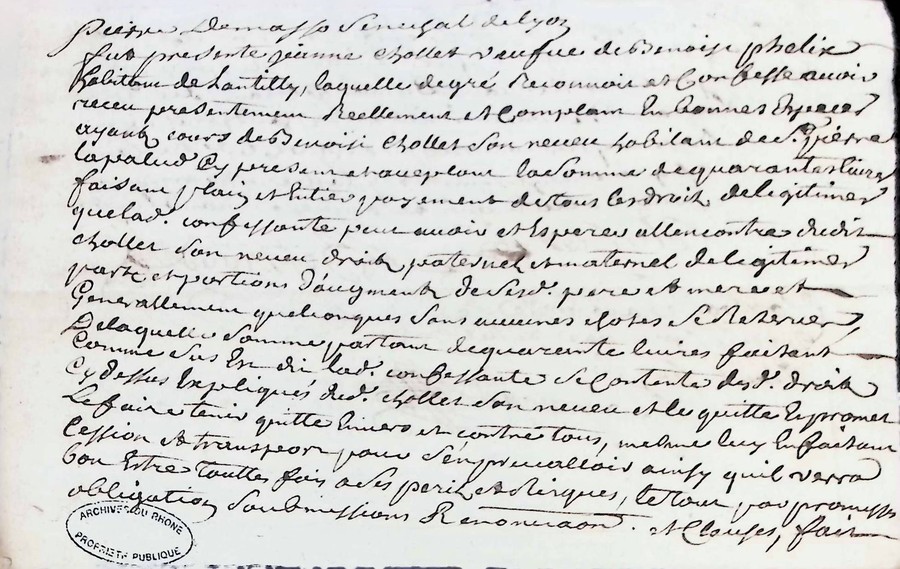 pierre Demasso Senechal de lyon
fut presente jeanne chollet veufue de Benoist phelix
habitant de chantilly, laquelle de gré Reconnoit et Confesse avoir
receu presentement Reellement et Comptant En bonnes Especes
ayant cours de Benoist chollet son neveu habitant de St. pierre
lapalud Cy present et acceptant la somme de quarantes livres
faisant plain et Entier payement de tous les droit de legitimes
que lad. confessante peut avoir et Esperer allencontre dudit
chollet son neveu droit paternel et maternel de legitimes
parts et portions d'augment de sesd. pere et mere et
Generallement quelconques sans aucunes choses se Reserver,
De laquelle somme partant de quarente livres faisant
Comme sus Est dit lad. confessante se Contente desd. droit
Cy dessus Expliqués dud. chollet son neveu et le quitte En promet
Le faire tenir quitte Envers et contre tous, mesme luy En faisant
Cession et transport pour s'en prevalloir ainsy quil verra
bon Estre touttes fois a ses peril et Risques, le tout par promesses
obligation Soubmissions Renonciaon. et Clauses, fait
ARCHIVES DU RHONE
PROPRIÉTÉ PUBLIQUE